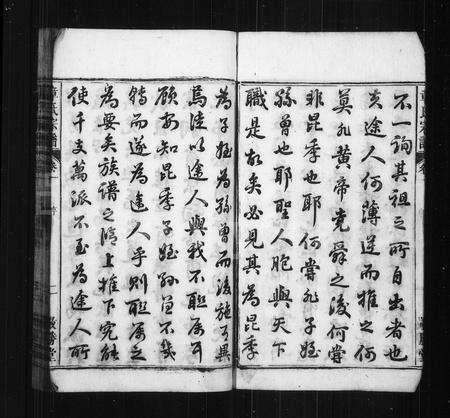 不一詢其祖之所自出者也
夫途人何薄逆而推之何
莫非黃帝堯舜之後何嘗
非昆季也耶何嘗非子姪
孫曾也耶聖人胞與天下
職是故矣必見其為昆季
為子姪為孫曾而後施有異
焉法以途人與我不聯屬耳
顧安知昆季子姪孫曾不幾
轉而遂為途人乎則聯屬之
為要矣族譜之修上推下究能
使千支萬派不至為途人所